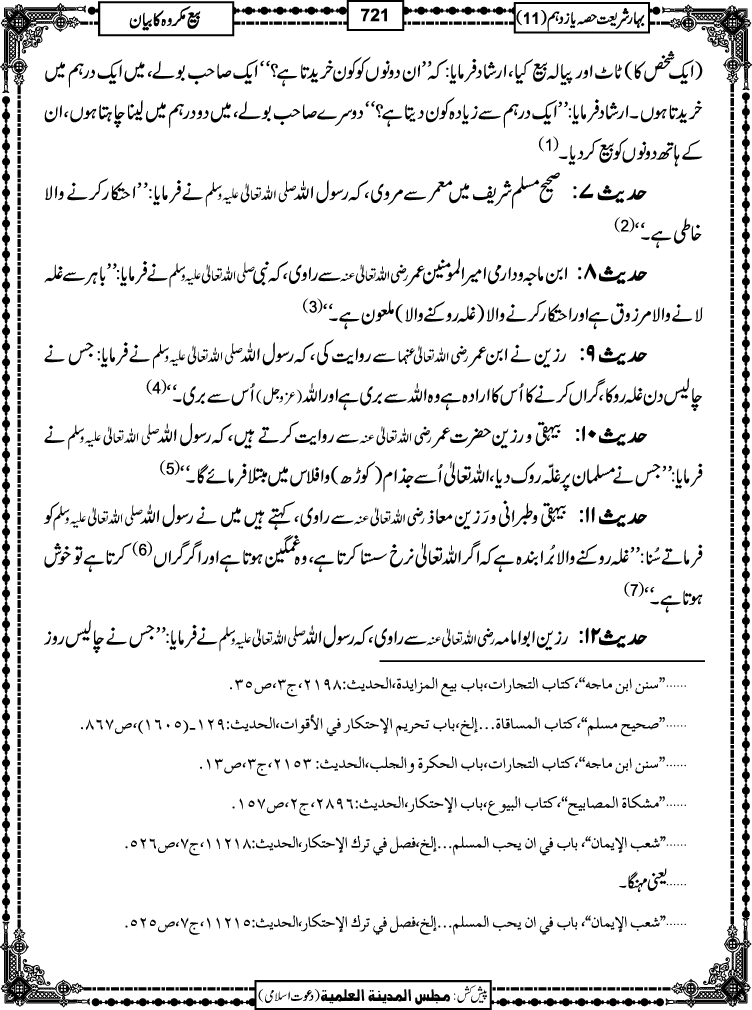 بہارِ شریعت حصہ یازدہم (11)
721
بیع مکروہ کا بیان
(ایک شخص کا) ٹاٹ اور پیالہ بیع کیا، ارشاد فرمایا: کہ ’’ان دونوں کو کون خریدتا ہے؟‘‘ ایک صاحب بولے، میں ایک درہم میں
خریدتا ہوں۔ ارشاد فرمایا: ’’ایک درہم سے زیادہ کون دیتا ہے؟‘‘ دوسرے صاحب بولے، میں دو درہم میں لینا چاہتا ہوں، ان
کے ہاتھ دونوں کو بیع کردیا۔ (1)
حدیث ۷: صحیح مسلم شریف میں معمر سے مروی، کہ رسول اللہ صلی اللہ تعالیٰ علیہ وسلم نے فرمایا: ’’احتکار کرنے والا
خاطی ہے۔‘‘ (2)
حدیث ۸: ابن ماجہ و دارمی امیر المومنین عمر رضی اللہ تعالیٰ عنہ سے راوی، کہ نبی صلی اللہ تعالیٰ علیہ وسلم نے فرمایا: ’’باہر سے غلہ
لانے والا مرزوق ہے اور احتکار کرنے والا (غلہ روکنے والا) ملعون ہے۔‘‘ (3)
حدیث ۹: رزین نے ابن عمر رضی اللہ تعالیٰ عنہما سے روایت کی، کہ رسول اللہ صلی اللہ تعالیٰ علیہ وسلم نے فرمایا: جس نے
چالیس دن غلہ روکا، گراں کرنے کا اُس کا ارادہ ہے وہ اللہ سے بری ہے اور اللہ (عزوجل) اُس سے بری۔‘‘ (4)
حدیث ۱۰: بیہقی و رزین حضرت عمر رضی اللہ تعالیٰ عنہ سے روایت کرتے ہیں، کہ رسول اللہ صلی اللہ تعالیٰ علیہ وسلم نے
فرمایا: ’’جس نے مسلمان پر غلّہ روک دیا، اللہ تعالیٰ اُسے جذام (کوڑھ) و افلاس میں مبتلا فرمائے گا۔‘‘ (5)
حدیث ۱۱: بیہقی و طبرانی و رَزین معاذ رضی اللہ تعالیٰ عنہ سے راوی، کہتے ہیں میں نے رسول اللہ صلی اللہ تعالیٰ علیہ وسلم کو
فرماتے سُنا: ’’غلہ روکنے والا بُرا بندہ ہے کہ اگر اللہ تعالیٰ نرخ سستا کرتا ہے، وہ غمگین ہوتا ہے اور اگر گراں (6) کرتا ہے تو خوش
ہوتا ہے۔‘‘ (7)
حدیث ۱۲: رزین ابوامامہ رضی اللہ تعالیٰ عنہ سے راوی، کہ رسول اللہ صلی اللہ تعالیٰ علیہ وسلم نے فرمایا: ’’جس نے چالیس روز
......’’سنن ابن ماجه‘‘، كتاب التجارات، باب بيع المزايدة، الحديث: ٢١٩٨، ج٣، ص٣٥.
......’’صحيح مسلم‘‘، كتاب المساقاة...إلخ، باب تحريم الإحتكار في الأقوات، الحديث: ١٢٩۔(١٦٠٥)، ص٨٦٧.
......’’سنن ابن ماجه‘‘، كتاب التجارات، باب الحكرة والجلب، الحديث: ٢١٥٣، ج٣، ص١٣.
......’’مشكاة المصابيح‘‘، كتاب البيوع، باب الإحتكار، الحديث: ٢٨٩٦، ج٢، ص١٥٧.
......’’شعب الإيمان‘‘، باب في ان يحب المسلم...إلخ، فصل في ترك الإحتكار، الحديث: ١١٢١٨، ج٧، ص٥٢٦.
......یعنی مہنگا۔
......’’شعب الإيمان‘‘، باب في ان يحب المسلم...إلخ، فصل في ترك الإحتكار، الحديث: ١١٢١٥، ج٧، ص٥٢٥.
پیش کش: مجلس المدینۃ العلمیۃ (دعوت اسلامی)